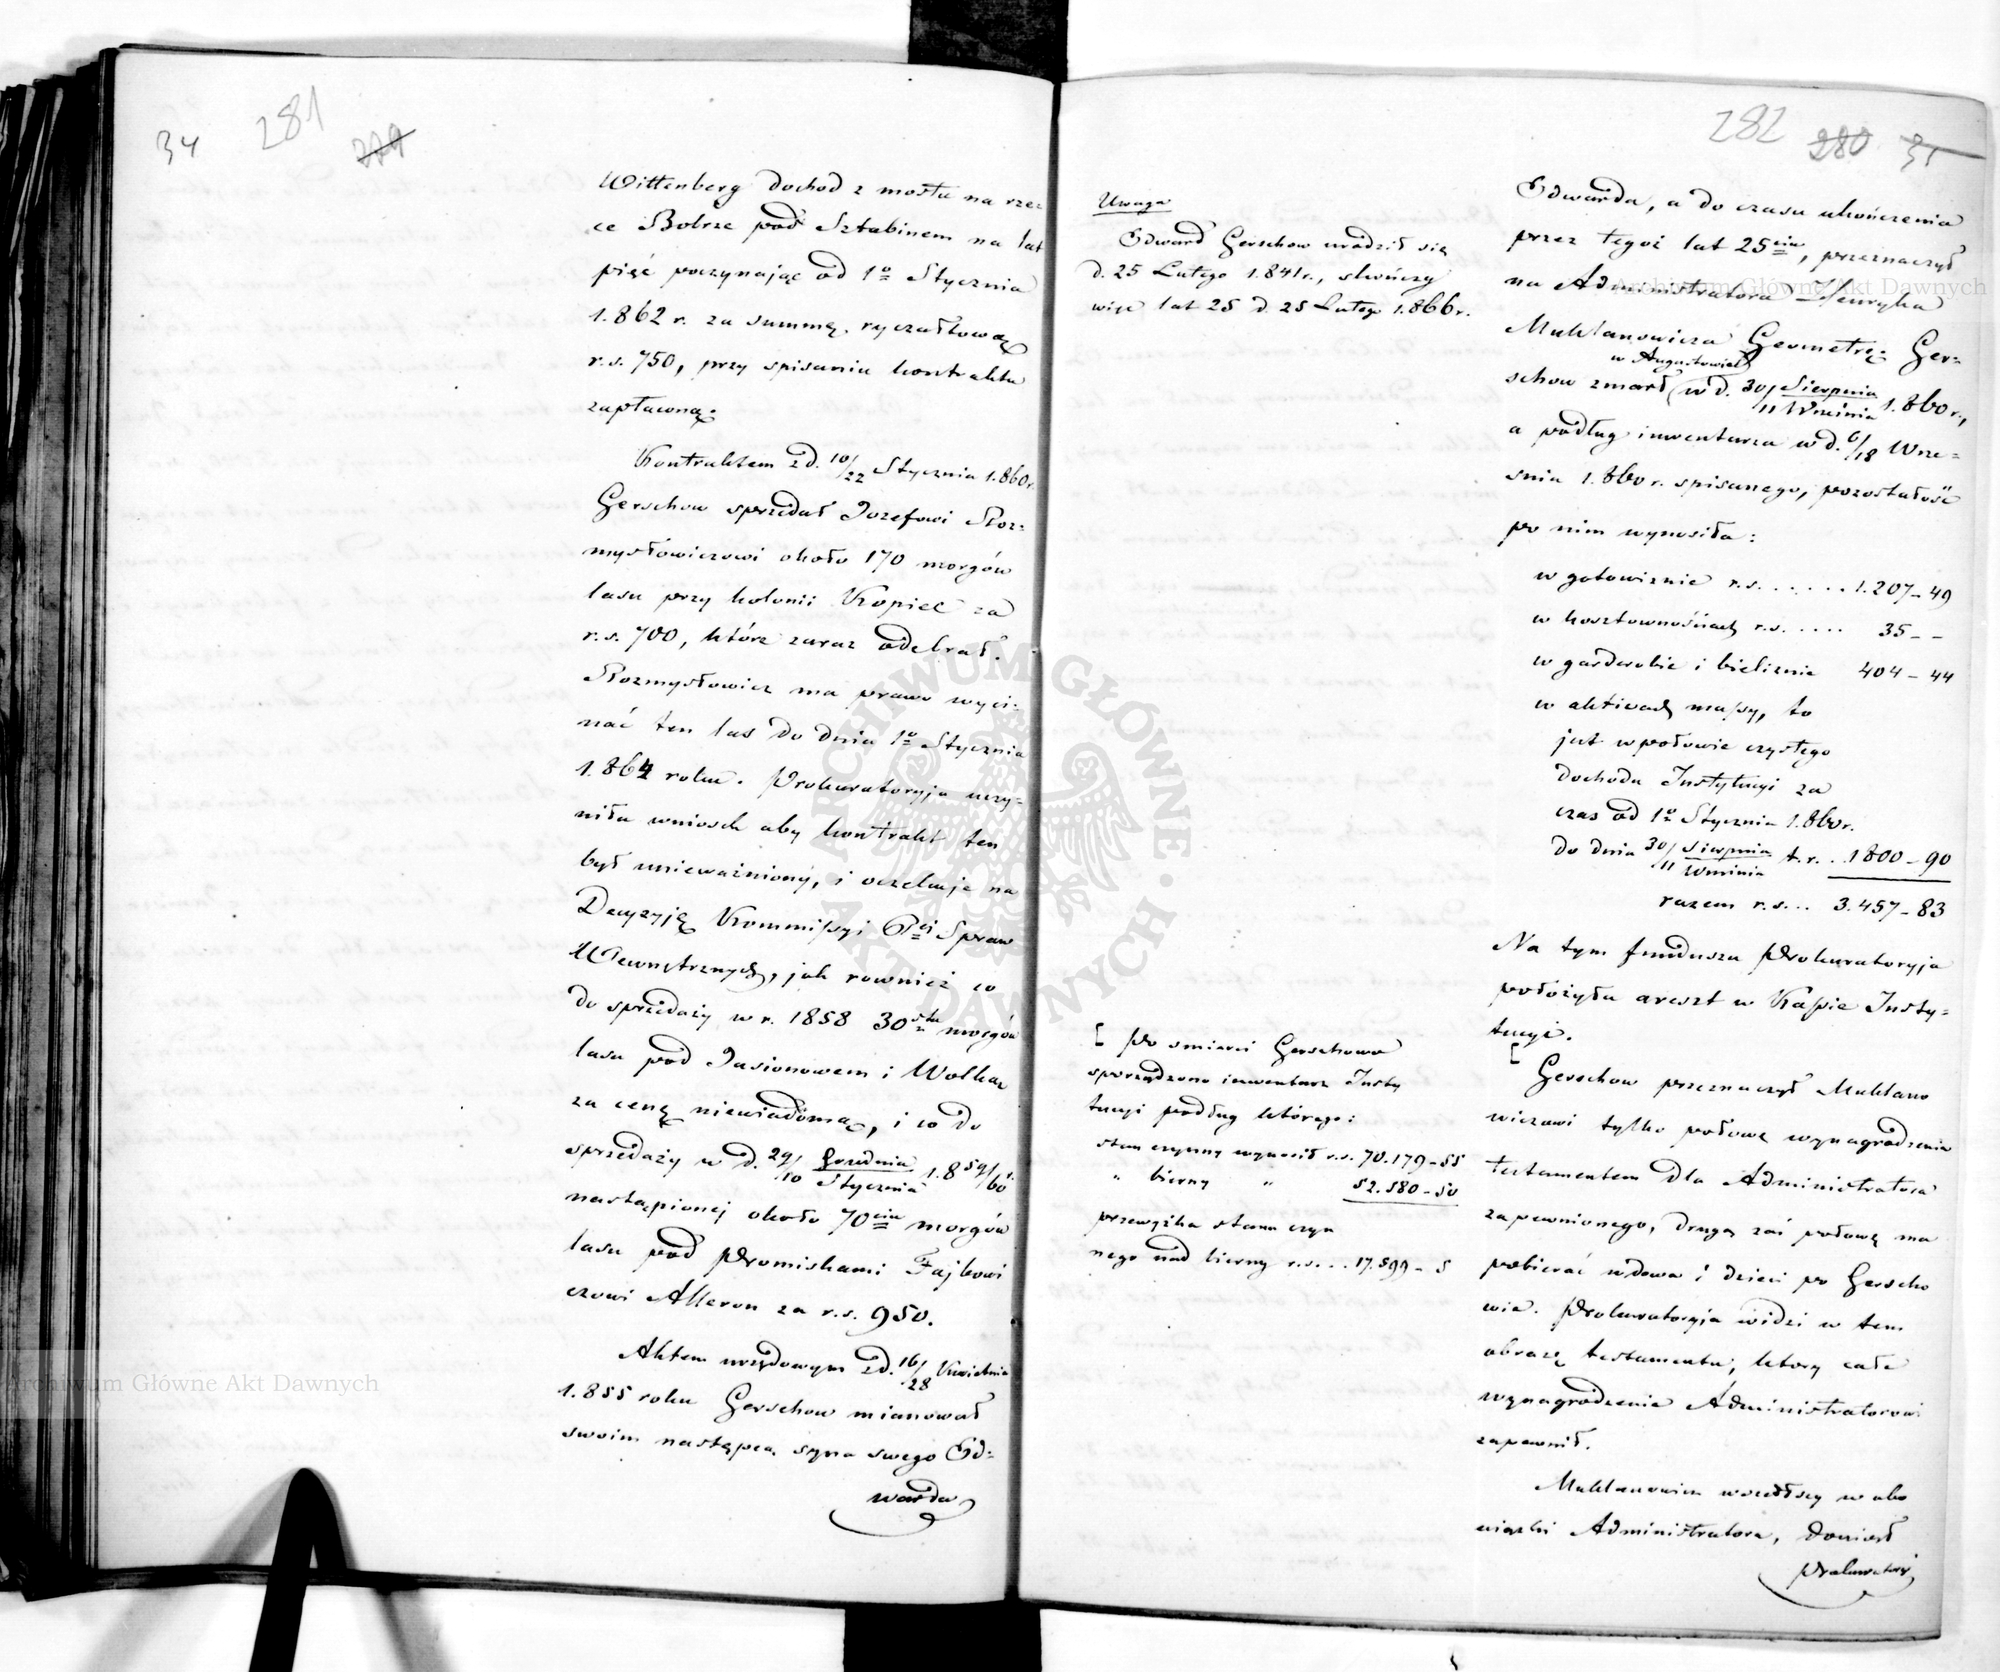 34 281 279
Wittenberg dochod z mostu na rze=
ce Bobrze pod Sztabinem na lat
pięć poczynając od 1º Stycznia
1.862 r. za summę ryczałtową
r.s. 750, przy spisaniu kontraktu
zapłaconą.
Kontraktem z d. 10/22 Stycznia 1.860 r.
Gerschow sprzedał Jozefowi Roz=
mysłowiczowi około 170 morgów
lasu przy kolonii Kopiec za
r.s. 700, które zaraz odebrał.
Rozmysłowicz ma prawo wyci=
nać ten las do dnia 1º Stycznia
1.864 roku. Prokuratoryja uczy=
niła wniosek aby kontrakt ten
był unieważniony, i oczekuje na
Decyzyję Kommissyi Spraw
Wewnętrznych, jak rownież co
do sprzedaży w r. 1858 30stu morgów
lasu pod Jasionowem i Wolką
za cenę niewiadomą, i co do
sprzedaży w d. 29/10 Grudnia/Stycznia 1.859/60 r.
nastąpionej około 70ciu morgów
lasu pod Promiskami Fajbowi
czowi Alleron za r.s. 950.
Aktem urzędowym z d. 16/28 Kwietnia
1.855 roku Gerschow mianował
swoim następcą syna swego Ed=
warda
282 280 35
Uwaga
Edward Gerschow urodził się
d. 25 Lutego 1.841 r., skończy
więc lat 25 d. 25 Lutego 1.866 r.
[ Po smierci Gerschowa
sporządzono inwentarz Insty
tucyi podług którego:
stan czynny wynosił r.s. 70.179-55
" bierny " 52.580-50
przewyżka stanu czyn
nego nad bierny r.s... 17.599-5
Edwarda, a do czasu ukończenia
przez tegoż lat 25ciu, przeznaczył
na Administratora Henryka
Muklanowicza Geometrę. Ger=
w Augustowie
schow zmarł w d. 30/11 Sierpnia/Września 1.860 r.,
a podług inwentarza w d. 6/18 Wrze=
snia 1.860 r. spisanego, pozostałość
po nim wynosiła:
w gotowiznie r.s. ...... 1.207-49
w kosztownościach r.s. .... 35 - -
w garderobie i bieliznie 404-44
w aktivach massy, to
jest w połowie czystego
dochodu Instytucyi za
czas od 1º Stycznia 1.860 r.
do dnia 30/11 Sierpnia/Września t.r. .. 1800-90
razem r.s... 3.457-83
Na tym funduszu Prokuratoryja
położyła areszt w Kassie Insty=
tucyi.
[ Gerschow przeznaczył Muklano
wiczowi tylko połowę wynagrodzenia
testamentem dla Administratora
zapewnionego, drugą zaś połowę ma
pobierać wdowa i dzieci po Gerscho
wie. Prokuratoryja widzi w tem
obrazę testamentu, ktory całe
wynagrodzenie Administratorowi
zapewnił.
Muklanowicz wszedłszy w obo
wiązki Administratora, doniosł
Prokuratoryi
Archiwum Główne Akt Dawnych
Archiwum Główne Akt Dawnych
ARCHIWUM GŁÓWNE · AKT DAWNYCH ·